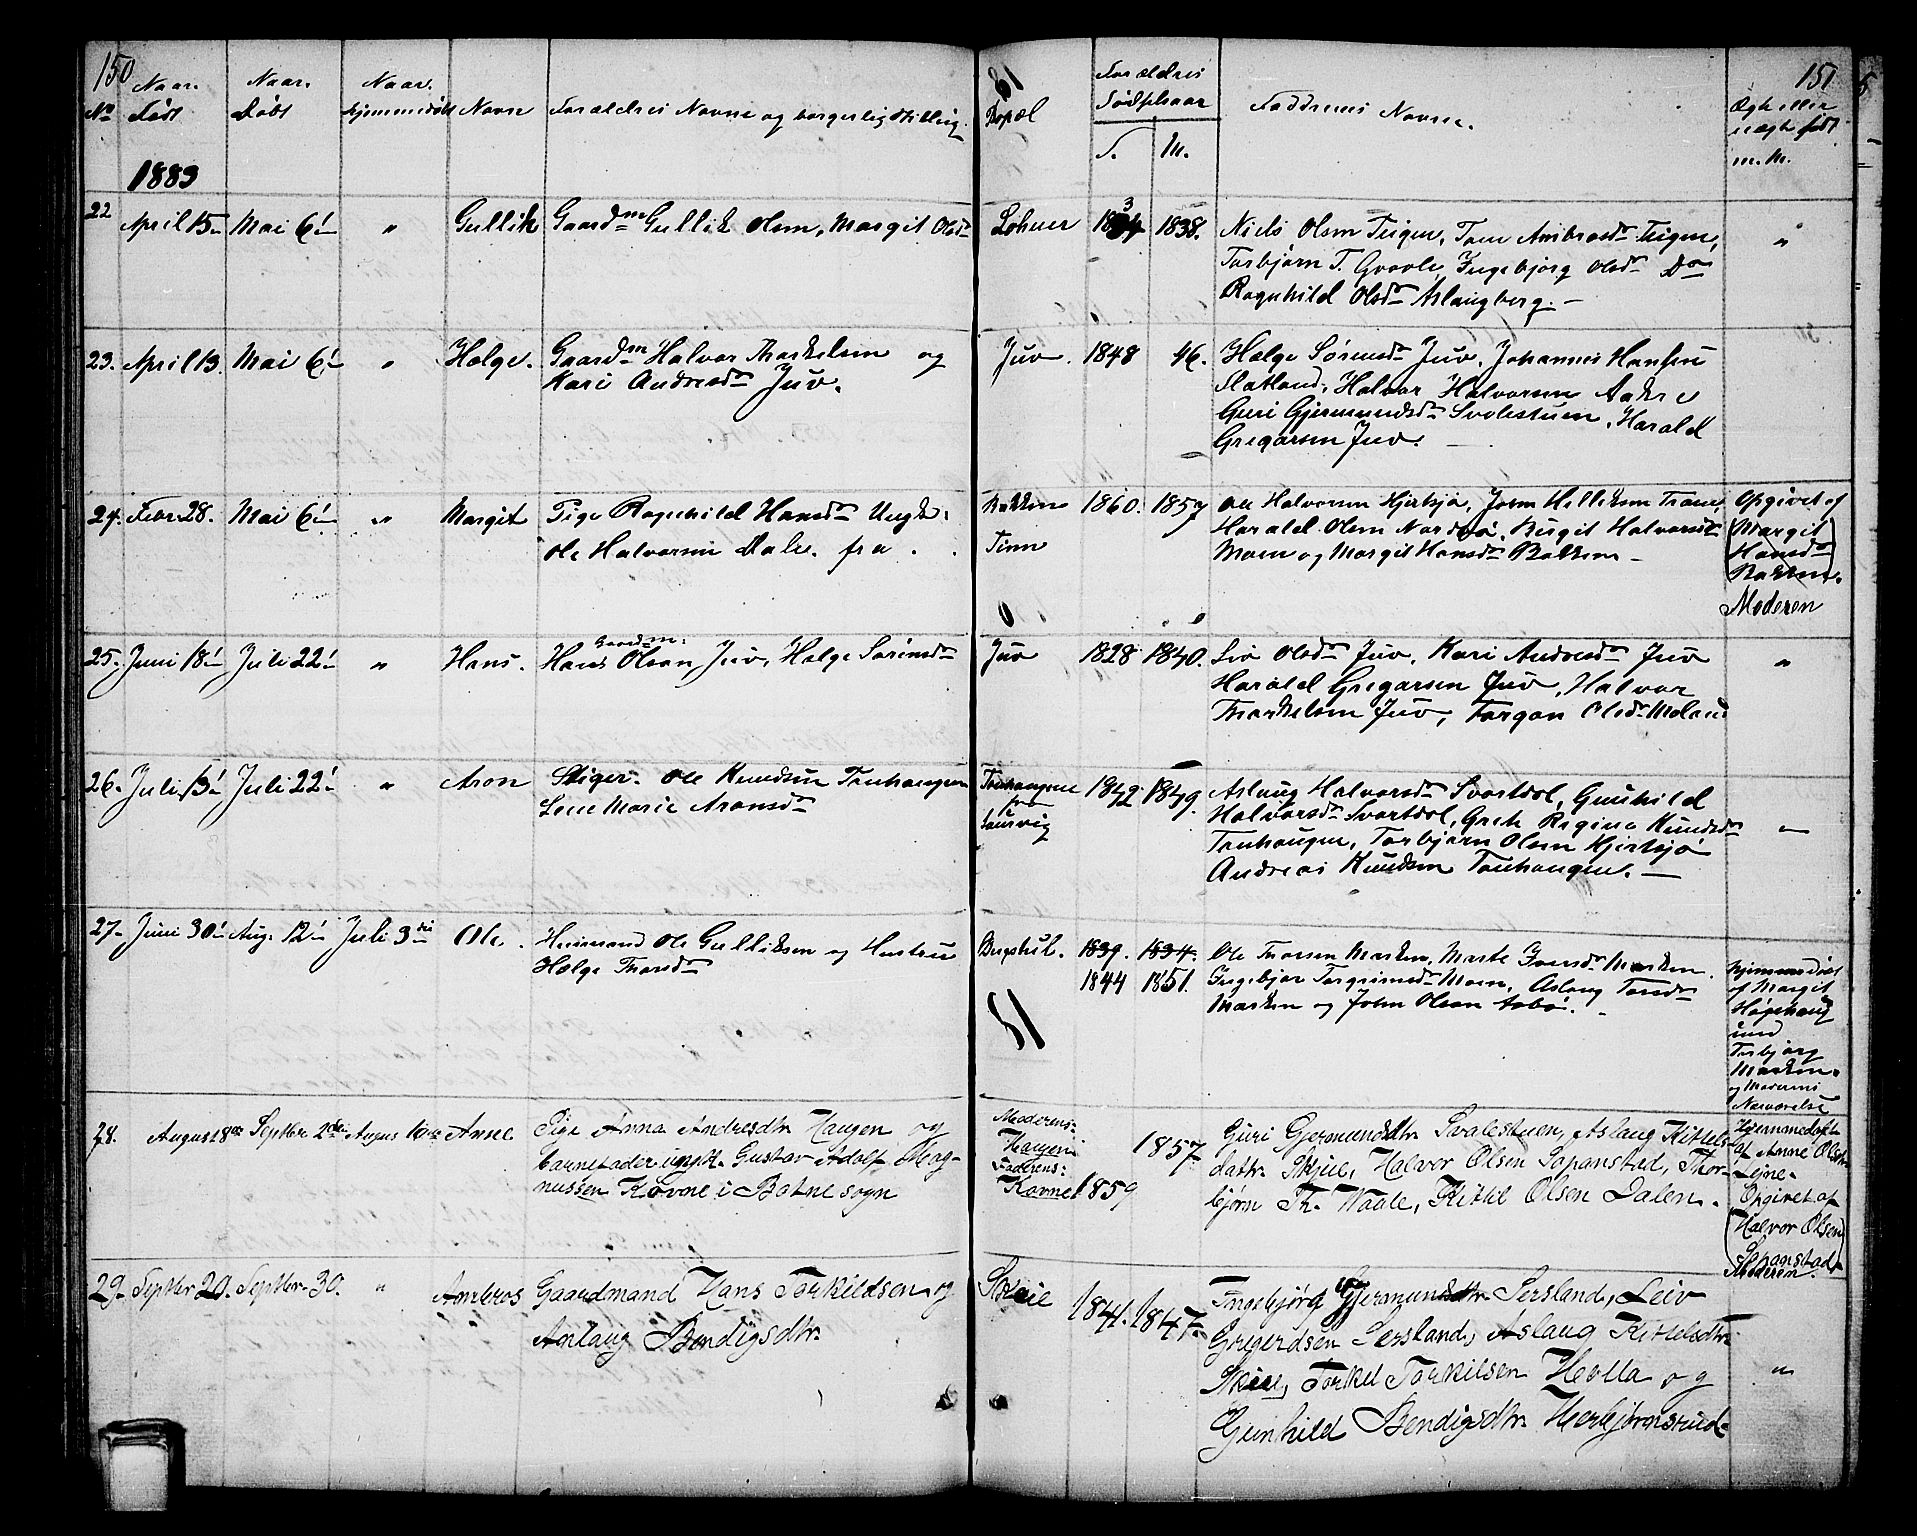 150
151
No
Naar Født
Naar Døbt
Naar hjemmedøbt
Navne
Forældres Navne og borgerlig stilling.
Bopæl
Forældres Fødselsaar
F.
M.
Faddrenes Navne.
Ægte eller uægte født m. M.
1883
22 April 15 Mai 6 " Gullik Gaardm Gullik Olsen, Margit Olsdr
Lohner 1834 1838. Niels Olsen Teigen, Tone Ambrosdr Teigen,
Torbjørn T. Ingebjørg Olsdr Do
Ragnhild Olsdr Aslaugberg.
23. April 13. Mai 6 " Helge. Gaardm Halvor Thorkelsen og
Kari Andresdr Juv.
Juv. 1848 46. Helge Sørensdr Juv, Johannes Hansen
Flatland, Halvor Halvorsen
Guri Gjermundsdr Svalestuen, Harald
Gregarsen Juv.
24. Febr 28. Mai 6 " Margit Pige Ragnhild Hansdr Ungk:
Ole Halvorsen Dale. fra
Bakken
Tinn
1860. 1857 Ole Halvorsen Hjerksjø, John
Harald Olsen Nordbø, Birgit Halvorsdr
Moen og Margit Hansdr Bakken
Opgivet af
(Margit
Hansdr
Bakken.)
Moderen
25. Juni 18 Juli 22 " Hans. Gaardm:
Hans Olsen Juv, Helge Sørensdr
Juv 1828 1840. Siv Olsdr Juv, Kari Andresdr Juv
Harald Gregarsen Juv, Halvor
Thorkelsen Juv, Torgon Olsdr
"
26. Juli 13 Juli 22 " Aron Ole Knudsen Tonhaugen
Lene Marie Aronsdr
Tonhaugene
fra
Laurvig
1842 1849. Aslaug Halvorsdr Svartdol, Gunhild
Halvorsdr Svartdol, Greth Regine Knudsdr
Tonhaugen, Torbjørn Olsen Hjerksjø
Andreas Knudsen Tonhaugen.
27. Juni 30 Aug. 12 Juli 3die Ole. Huusmand Ole Gulliksen og Hustru
Helge Thorsdr
1839. 1834.
1844 1851.
Ole Thorsen Marken, Marte Marken.
Ingebjør Torgrimsdr Moen, Aslaug Torsdr
Marken og John Olsen
hjemmedøbt
af Margit
Høgehaug
und
Torbjørg
Marken.
og Moderens
Nærværelse
28. August 8de Septbr 2den August 10de Anne Pige Anna Andresdtr Haugen og
barnefader ungk. Gustav Adolf Mag-
nussen Kovne i Botne sogn
Moderens:
Haugen
Faderens:
Kovne
1859 1857 Guri Gjermundsdtr Svalestuen, Aslaug Kittels-
dattr Skjeie, Halvor Olsen Sopanstad, Thor-
bjørn Th. Waale, Kittil Olsen Dalen.
Hjemmedøbt
af Anne Olsdtr
Opgivet af
(Halvor Olsen
Sopanstad)
Moderen.
29. Septbr 20. Septbr 30. " Ambros Gaardmand Hans Torkildsen og
Anlaug Bendigsdtr.
Skeie 1841. 1847. Ingebjørg Gjermundsdtr. Sersland, Leiv
Grigerdsen Sersland, Aslaug Kittelsdtr
Skeie, Torkel Torkilsen Hevlla og
Gunhild Bendigsdtr. Herbjørnsrud
"